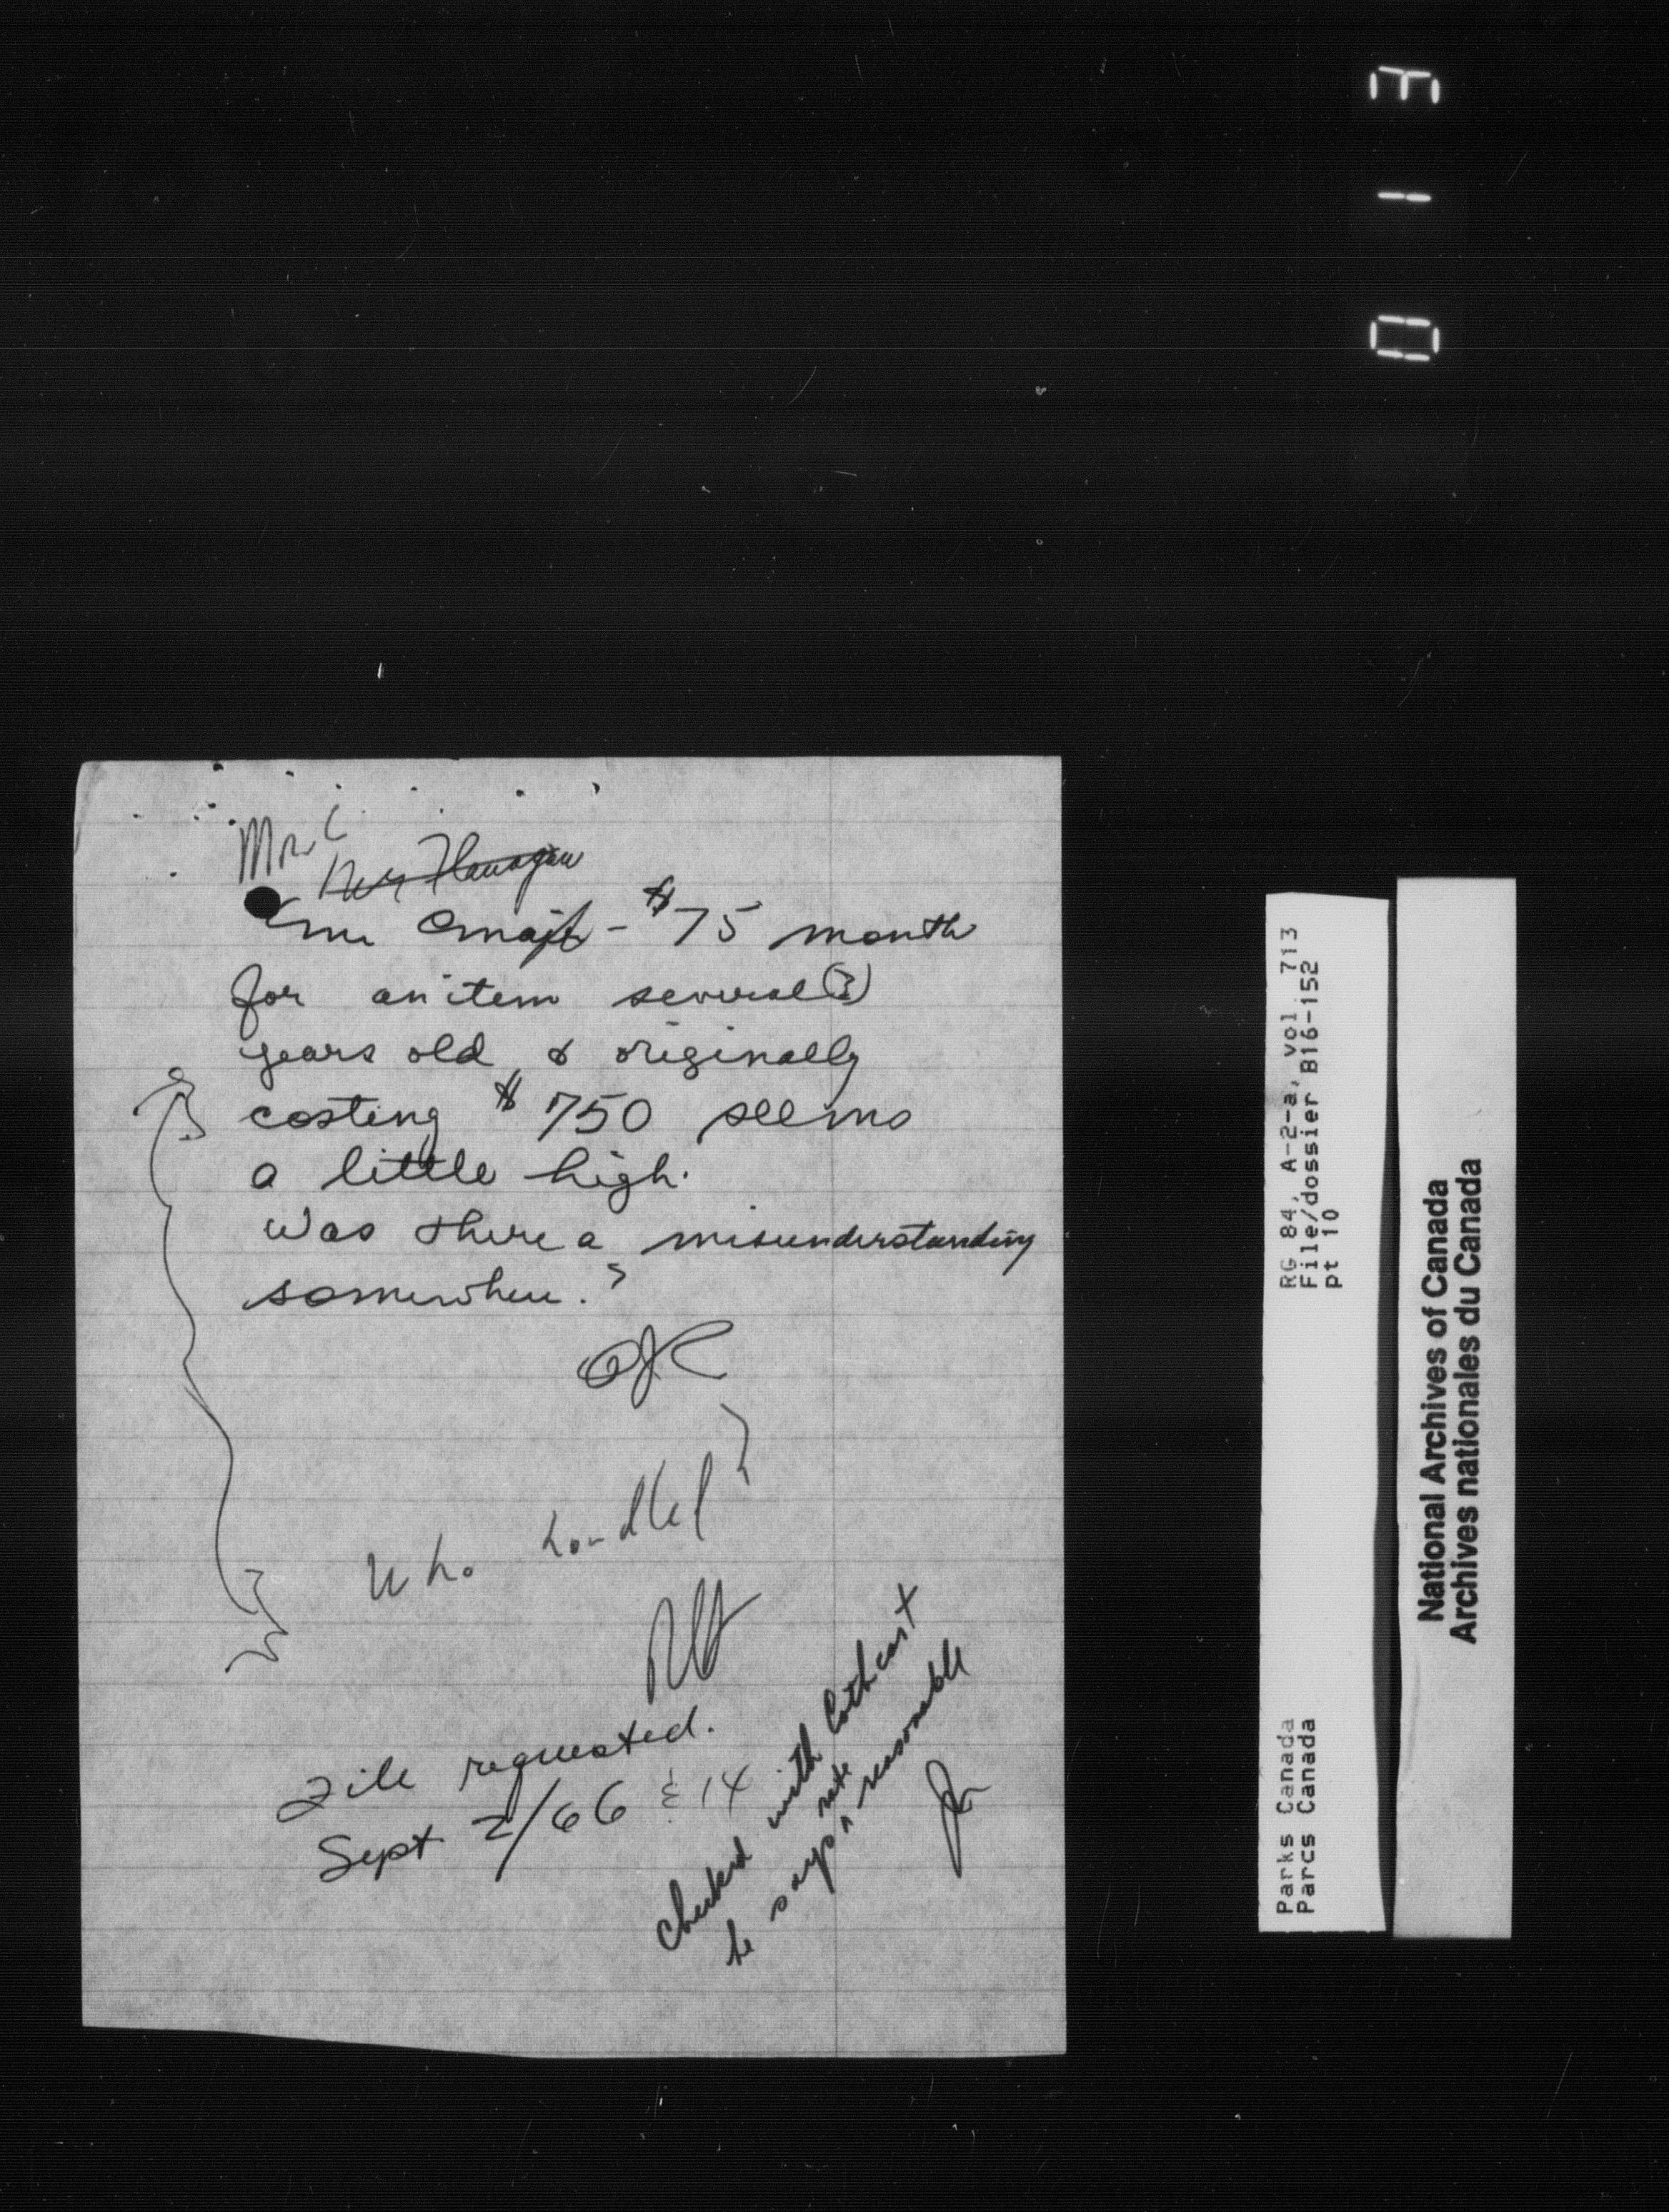 Mr. C
Mr. Flanagan
- $75 month
for an item several (?)
years old & originally
costing $750 seems
a little high.
Was there a misunderstanding
somewhere?
Who handled?
File requested.
Sept 2/66 & 14
Checked with Cothcart
he says rate reasonable
RG 84, A-2-a, vol. 713
File/dossier B16-152
pt 10
Parks Canada
Parcs Canada
National Archives of Canada
Archives nationales du Canada